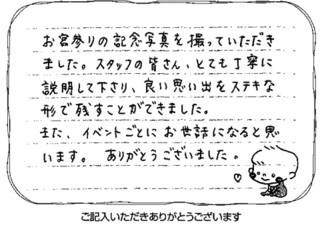 お宮参りの記念写真を撮っていただき
ました。スタッフの皆さん、とても丁寧に
説明して下さり、良い思い出をステキな
形で残すことができました。
また、イベントごとにお世話になると思
います。 ありがとうございました。
ご記入いただきありがとうございます